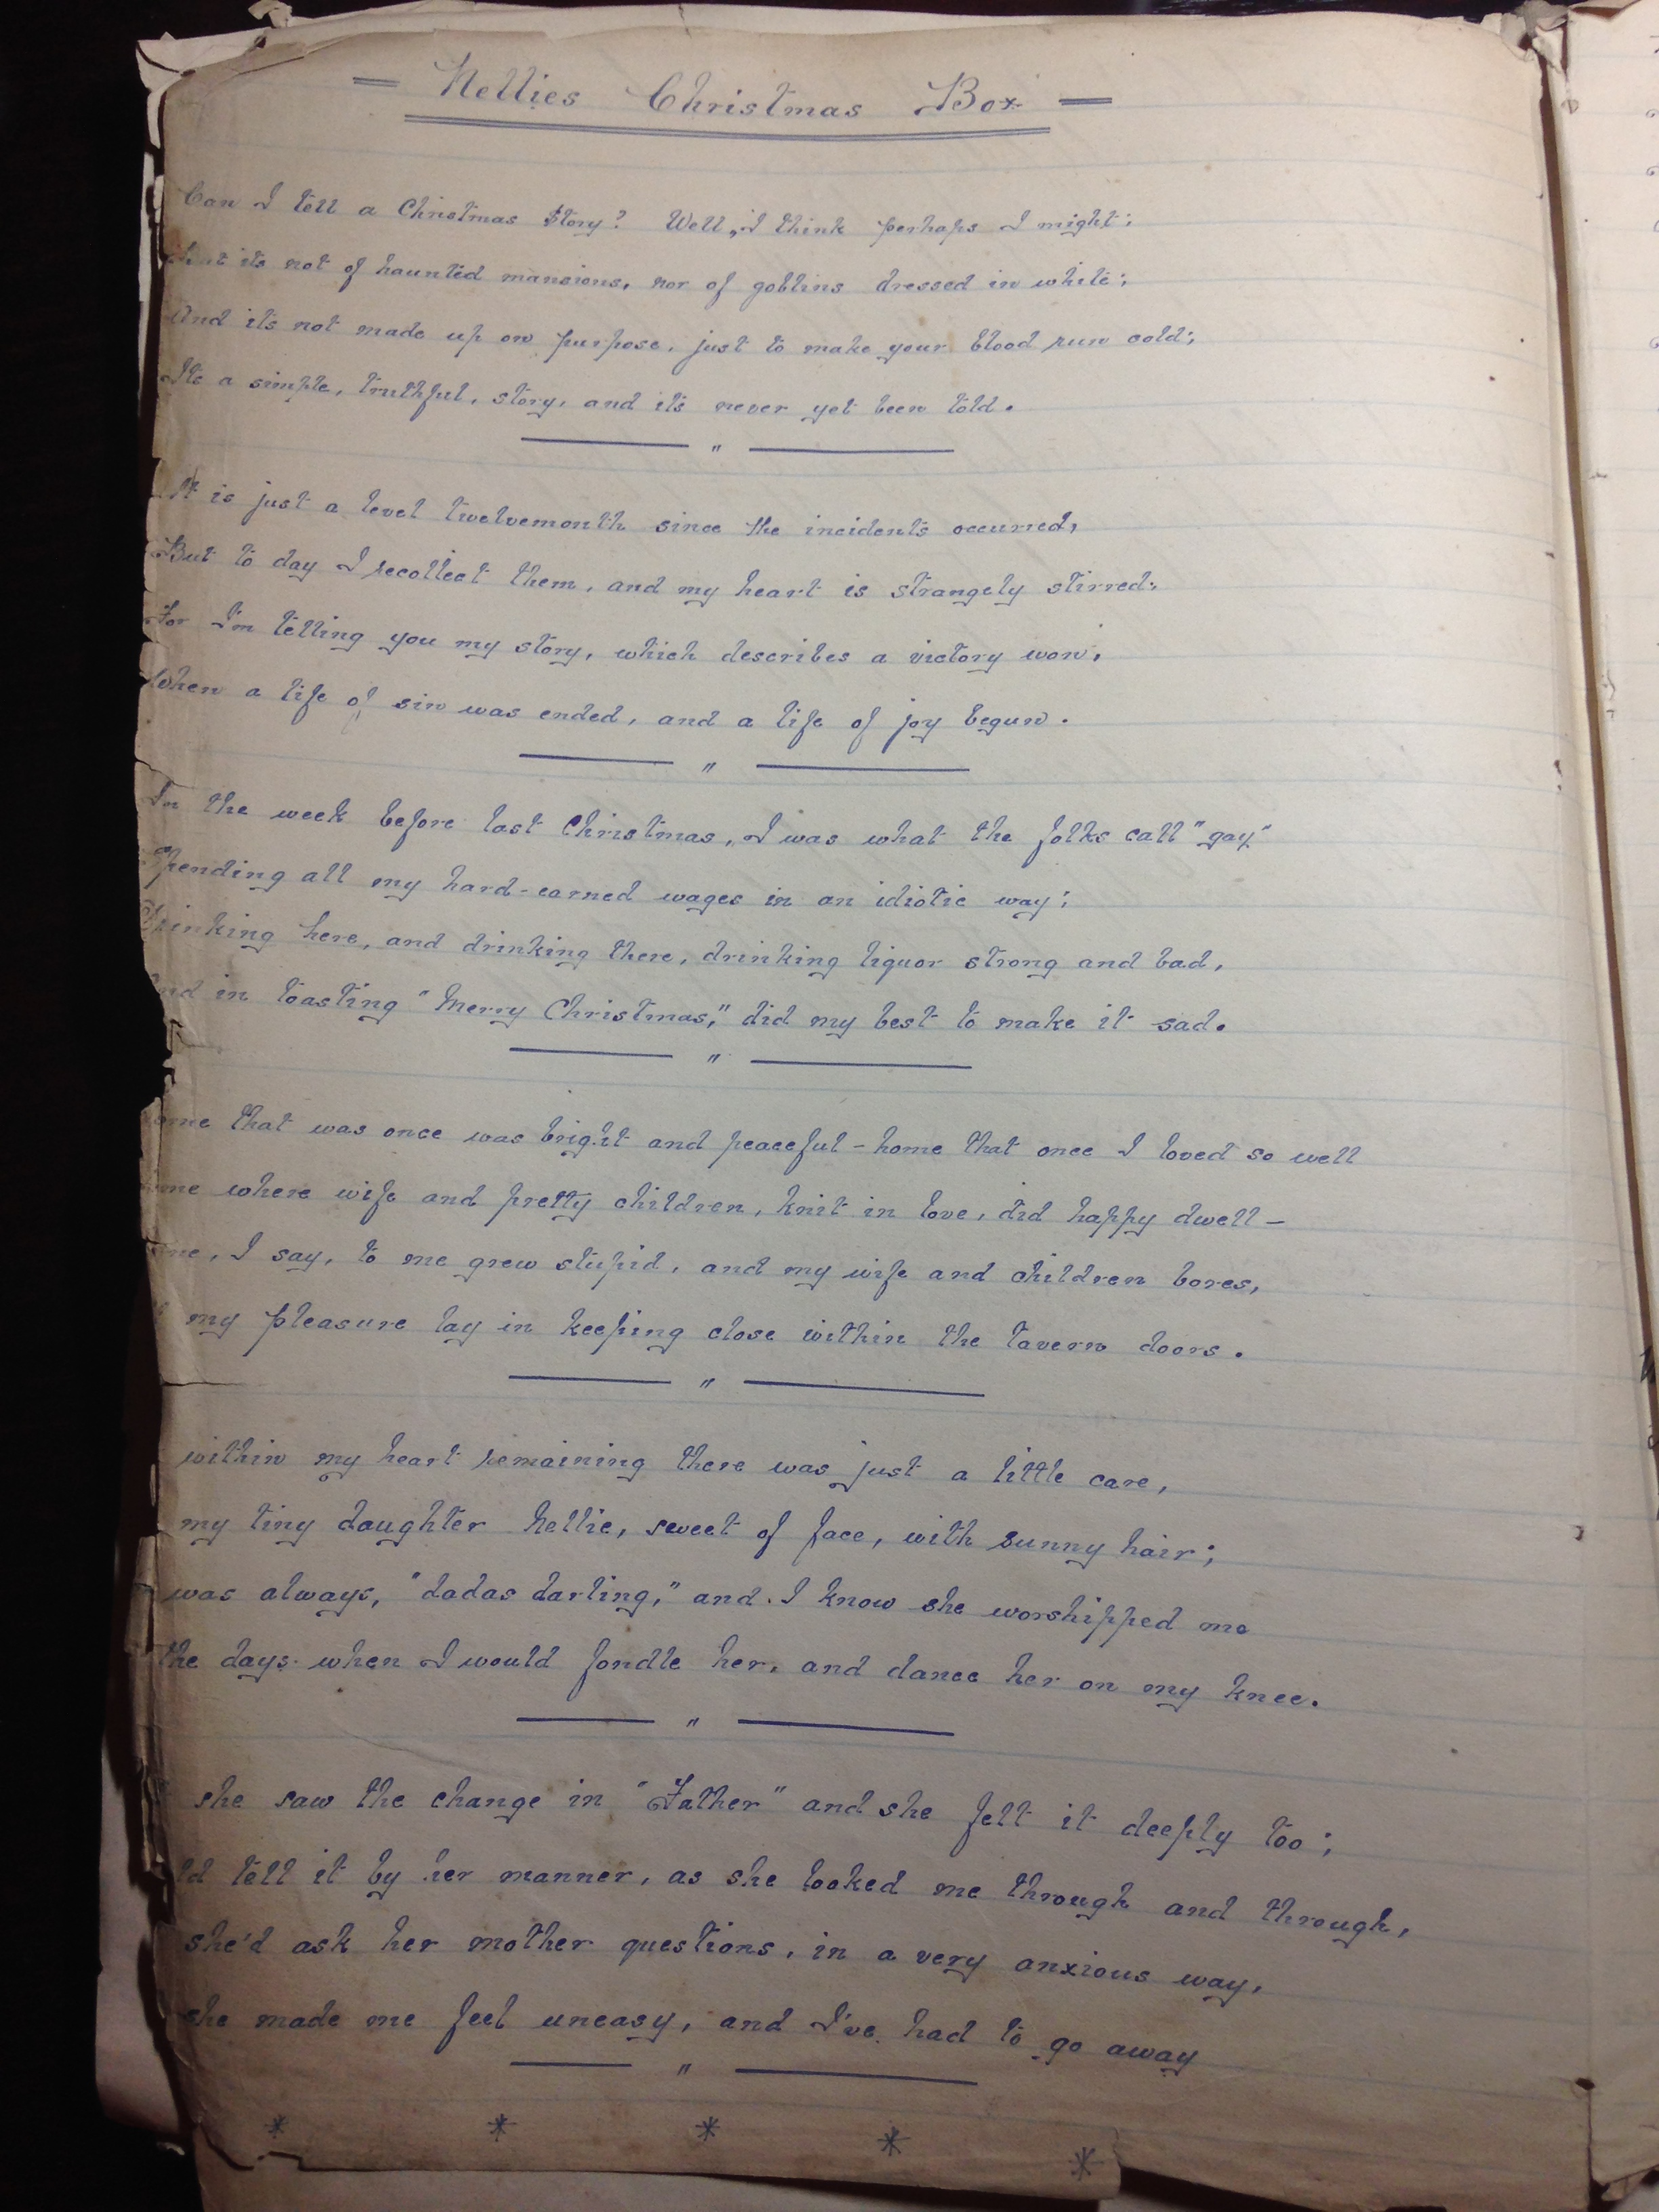 = Nellies Christmas Box =
Can I tell a Christmas Story? Well, I think perhaps I might;
But its not of haunted mansions, nor of goblins dressed in white;
And its not made up on purpose, just to make your blood run cold;
Its a simple, truthful, story, and its never yet been told.
It is just a level twelvemonth since the incidents occurred,
But to day I recollect them, and my heart is strangely stirred;
For I'm telling you my story, which describes a victory won,
When a life of sin was ended, and a life of joy begun.
In the week before last Christmas, I was what the folks call "gay"
Spending all my hard-earned wages in an idiotic way;
Drinking here, and drinking there, drinking liquor strong and bad,
And in toasting "Merry Christmas," did my best to make it sad.
ome that was once was bright and peaceful - home that once I loved so well
ome where wife and pretty children, knit in love, did happy dwell -
me, I say, to me grew stupid, and my wife and children bores,
my pleasure lay in keeping close within the tavern doors.
within my heart remaining there was just a little care,
my tiny daughter Nellie, sweet of face, with sunny hair;
was always, "dadas darling," and I know she worshipped me
the days when I would fondle her, and dance her on my knee.
she saw the change in "Father" and she felt it deeply too;
ld tell it by her manner, as she looked me through and through,
she'd ask her mother questions, in a very anxious way,
she made me feel uneasy, and I've had to go away
* * * * *